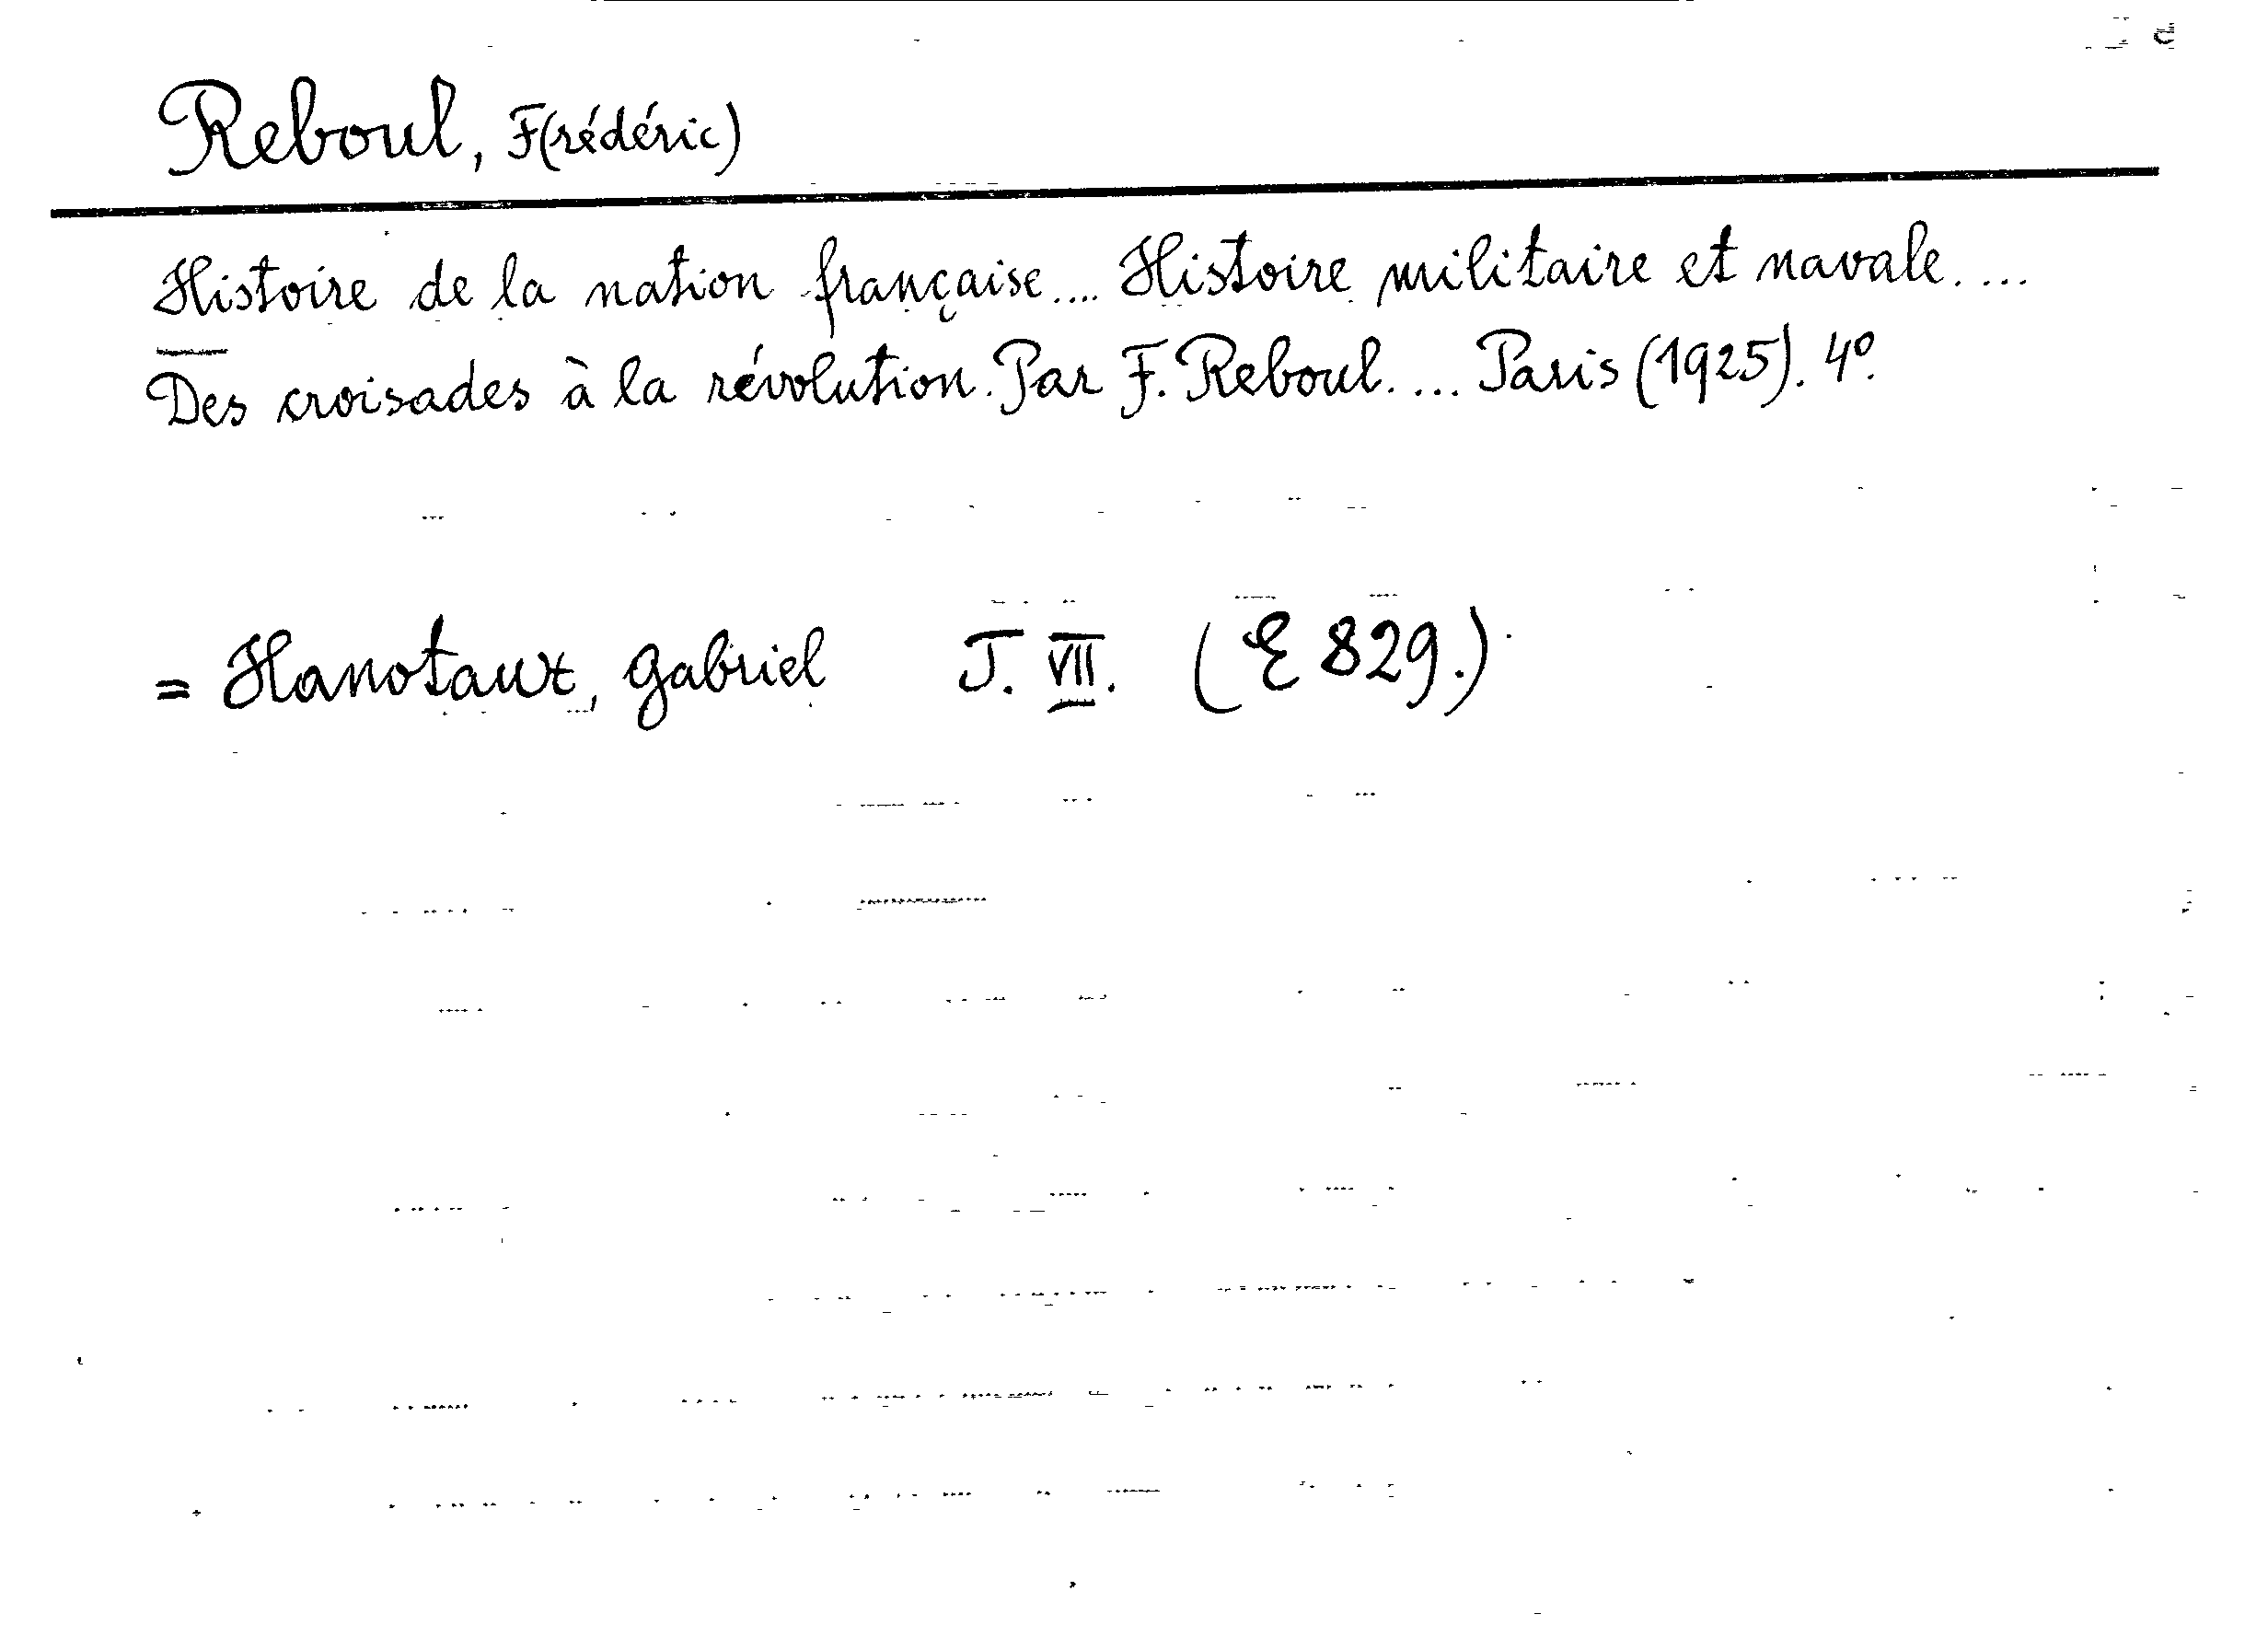 Reboul, F(rédéric)
Histoire de la nation française.... Histoire militaire et navale....
Des croisades à la révolution. Par F. Reboul.... Paris (1925). 4º.
= Hanotaux, Gabriel T. VII. (E 829.)